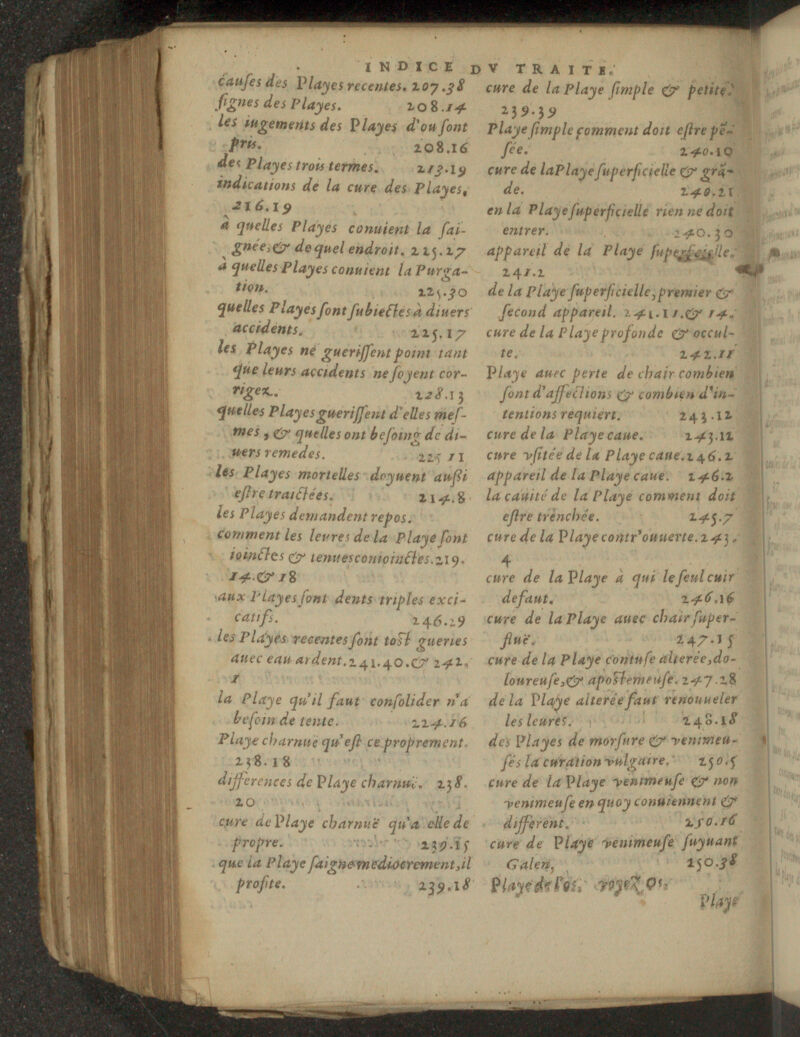 INDICE DV TRAITE.
caufes des Playes recentes. 207.38
fignes des Playes. 208.14
les iugements des Playes d'ou font
pris. 208.16
des Playes trois termes. 213.19
indications de la cure des Playes,
216.19
a quelles Playes conuient la fai-
gnee, & de quel endroit. 225.27
a quelles Playes conuient la Purga-
tion. 225.30
quelles Playes font fubiectes à diuers
accidents. 225.17
les Playes ne gueriffent point tant
que leurs accidents ne foyent cor-
rigez. 228.13
quelles Playes gueriffent d'elles mef-
mes, & quelles ont befoing de di-
uers remedes. 225 11
les Playes mortelles doyuent aufsi
eftre traictées. 214.8
les Playes demandent repos.
comment les leures de la Playe font
ioinctes & tenues conioinctes. 219.
14.& 18
aux Playes font dents triples exci-
catifs. 246.29
les Playes recentes font toft gueries
auec eau ardent. 241.40.& 242.
1
la Playe qu'il faut confolider n'a
befoin de tente. 224.16
Playe charnuë qu'eft ce proprement.
238.18
differences de Playe charnuë. 238.
20
cure de Playe charnuë qu'a elle de
propre. 239.15
que la Playe faigne mediocrement, il
profite. 239.18
cure de la Playe fimple & petite.
239.39
Playe fimple comment doit eftre pē-
fée. 240.10
cure de la Playe fuperficielle & grā-
de. 240.21
en la Playe fuperficielle rien ne doit
entrer. 240.30
appareil de la Playe fuperficielle.
241.2
de la Playe fuperficielle, premier &
fecond appareil. 241.11.& 14.
cure de la Playe profonde & occul-
te. 242.11
Playe auec perte de chair combien
font d'affections & combien d'in-
tentions requiert. 243.12
cure de la Playe caue. 243.12
cure vfitée de la Playe caue. 246.2
appareil de la Playe caue. 246.2
la cauité de la Playe comment doit
eftre trenchée. 245.7
cure de la Playe contr'ouuerte. 243.
4
cure de la Playe à qui le feul cuir
defaut. 246.16
cure de la Playe auec chair fuper-
fluë. 247.15
cure de la Playe contufe alterée, do-
loureufe, & apoftemeufe. 247.28
de la Playe alterée faut renouueler
les leures. 248.18
des Playes de morfure & venimeu-
fes la curation vulgaire. 250.5
cure de la Playe venimeufe & non
venimeufe en quoy conuiennent &
different. 250.16
cure de Playe venimeufe fuyuant
Galen, 250.38
Playe de l'os, voyez Os.
Playe